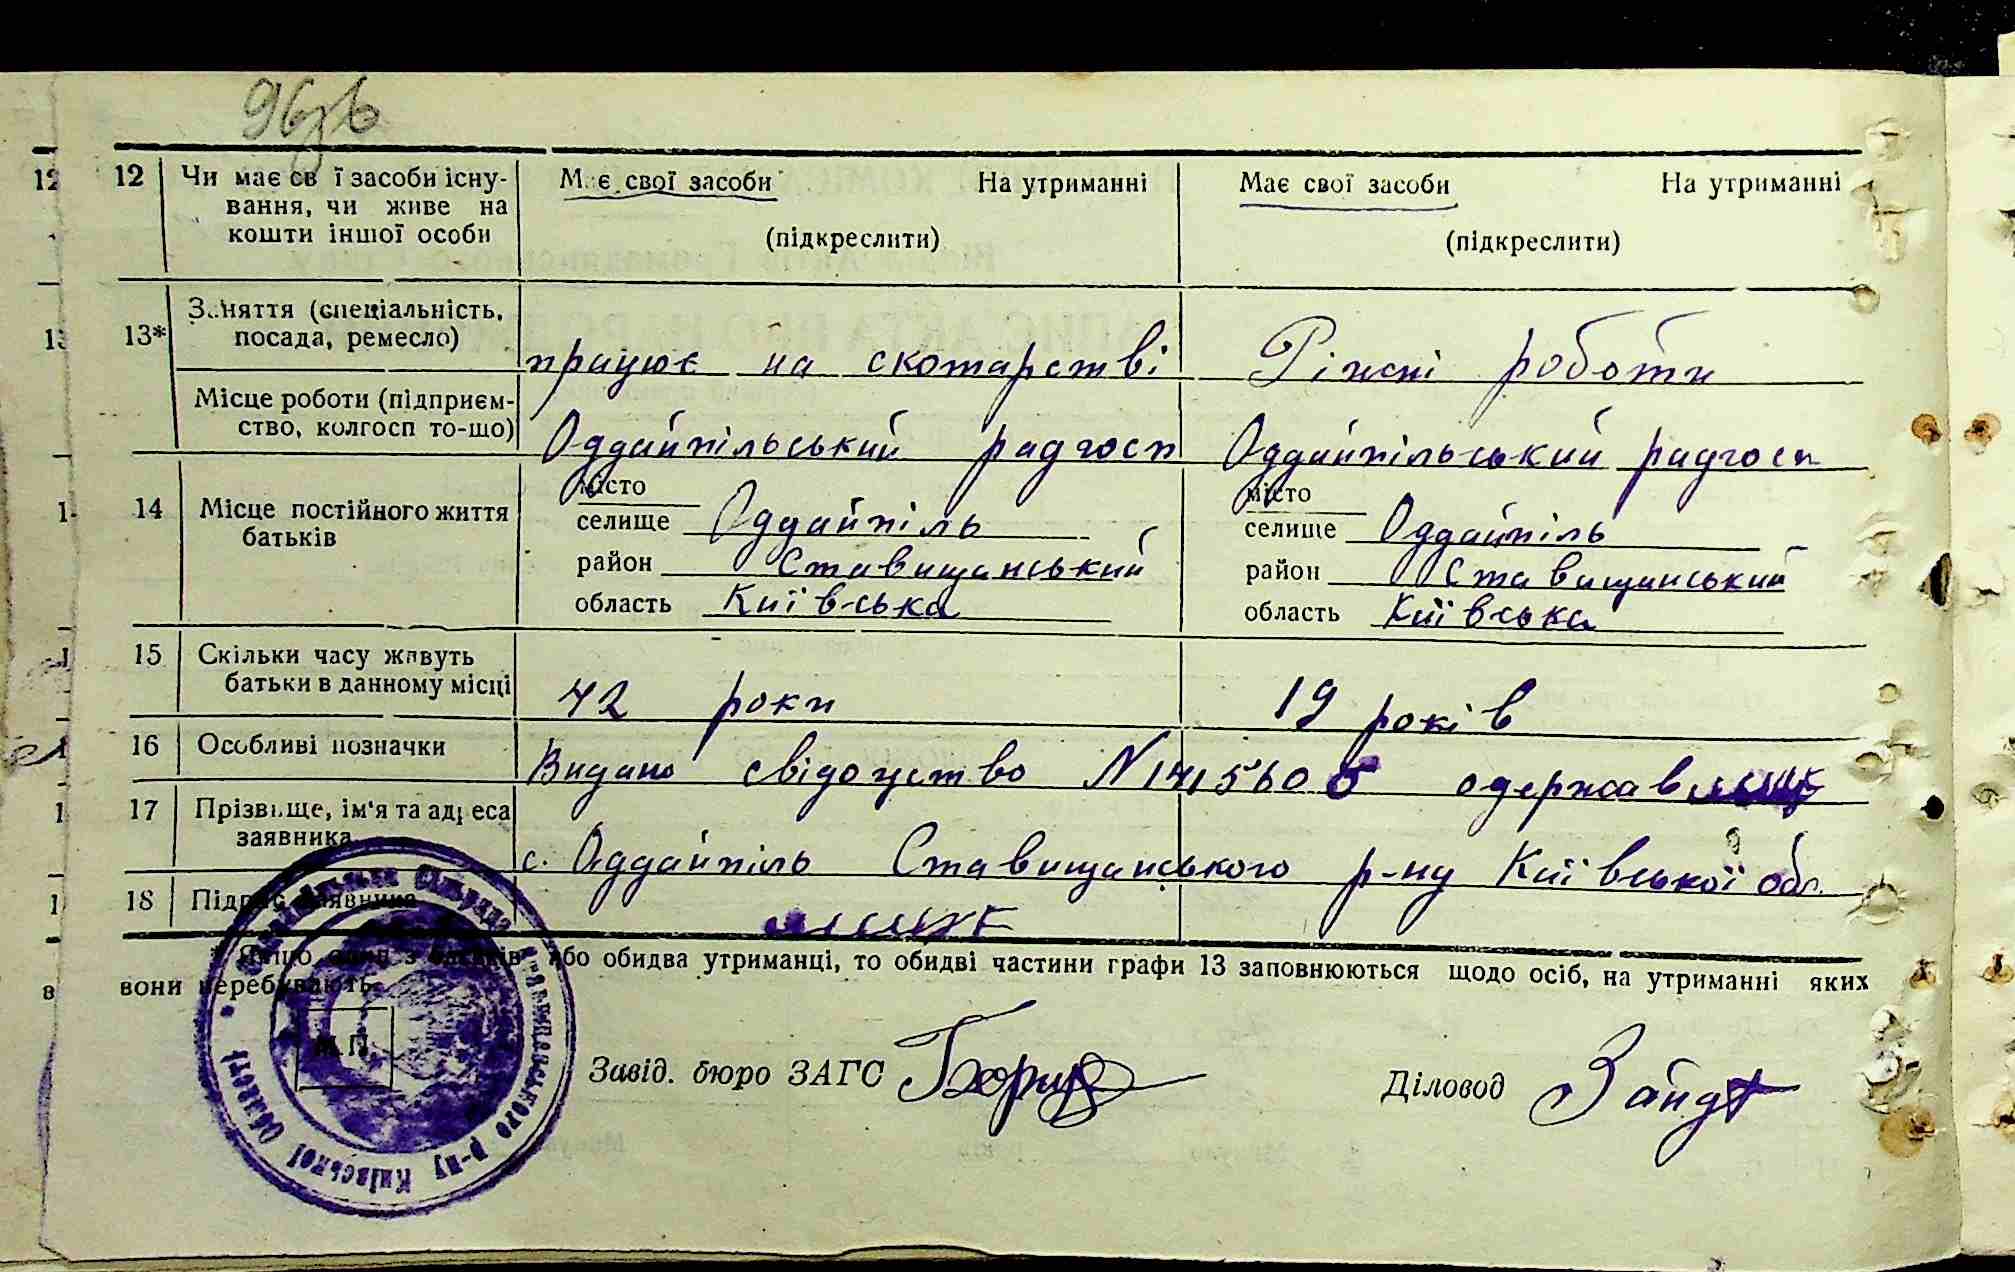 96зв
12 Чи має св ї засоби існу-
вання, чи живе на
кошти іншої особи
М є свої засоби На утриманні
(підкреслити)
Має свої засоби На утриманні
(підкреслити)
13* Заняття (спеціальність,
посада, ремесло)
працює на скотарстві
Ріжні роботи
Місце роботи (підприєм-
ство, колгосп то-що)
Оддайпільський радгосп
Оддайпільський радгосп
14 Місце постійного життя
батьків
місто
селище Оддайпіль
район Ставищанський
область Київська
місто
селище Оддайпіль
район Ставищанський
область Київська
15 Скільки часу живуть
батьки в данному місці
42 роки
19 років
16 Особливі позначки
Видано свідоцтво N 1415605 одержав
17 Прізвище, ім'я та адреса
заявника
с. Оддайпіль Ставищанського р-ну Київської обл.
18 Підпис заявника
Якщо один з батьків або обидва утриманці, то обидві частини графи 13 заповнюються щодо осіб, на утриманні яких
вони перебувають.
М.П.
р-ну Київської Области
Завід. бюро ЗАГС
Діловод